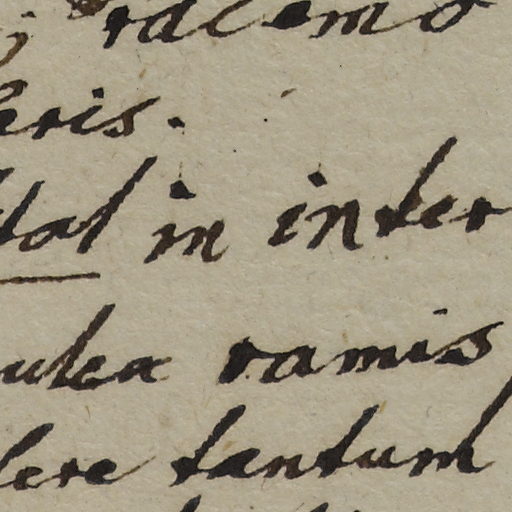 racemo
eris.
tal in inter
ulea ramis
lere tantum